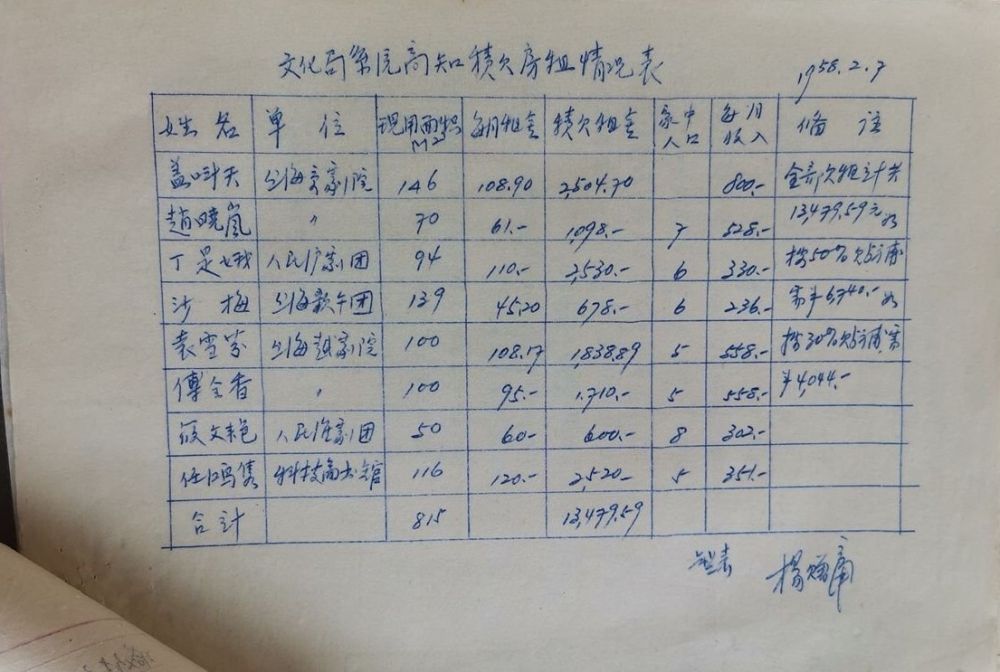 文化局系统高知積欠房租情况表
1958.2.7
姓名 单位 现用面积M2 每月租金 積欠租金 家中人口 每月收入 備注
盖叫天 上海京劇院 146 108.90 2,504.70 800.- 全部欠租共計
趙曉嵐 〃 70 61.- 1,098.- 7 528.- 13,479.59元
丁是娥 人民沪劇团 94 110.- 2,530.- 6 330.- 按50%
沙梅 上海歌午团 139 45.20 678.- 6 236.- 需¥6,740.-
袁雪芬 上海越劇院 100 108.17 1,838.89 5 558.- 按30%
傅全香 〃 100 95.- 1,710.- 5 558.- ¥4,044.-
筱文艳 人民淮劇团 50 60.- 600.- 8 302.-
任鸿隽 科技圖书館 116 120.- 2,520.- 5 351.-
合計 815 13,479.59